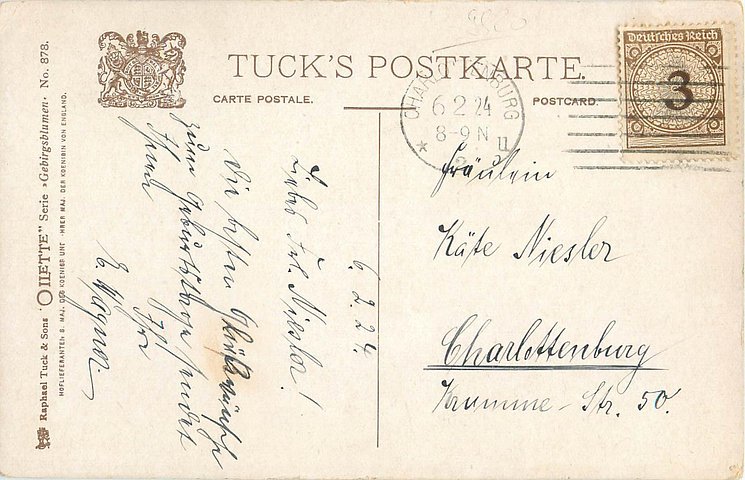 TUCK'S POSTKARTE.
CARTE POSTALE.
POSTCARD.
CHARLOTTENBURG
6 2 24
8-9 N
2
Deutsches Reich
3
Raphael Tuck & Sons "OILETTE" Serie »Gebirgsblumen« No. 878.
HOFLIEFERANTEN S. MAJ. DES KOENIGS UND IHRER MAJ. DER KOENIGIN VON ENGLAND.
6.2.24.
Liebes Frl. Niesler!
Die besten Glückwünsche
zum Geburtstage sendet
Ihnen Ihr
E. Wagner
Fräulein
Käte Niesler
Charlottenburg
Krumme-Str. 50.